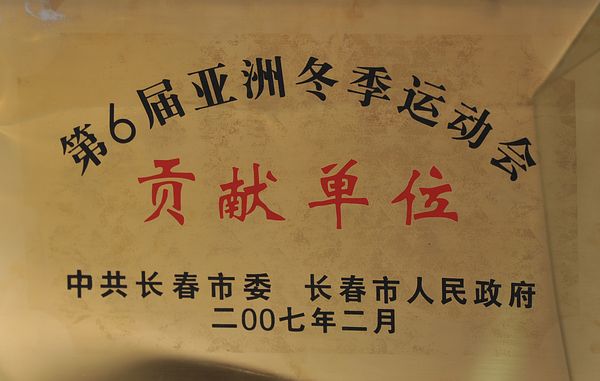 第6届亚洲冬季运动会
贡献单位
中共长春市委 长春市人民政府
二00七年二月